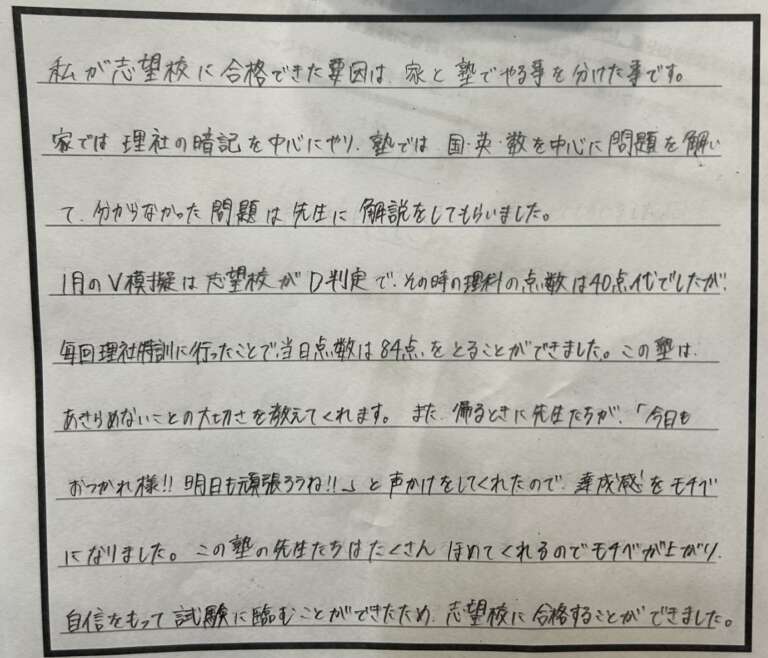 私が志望校に合格できた要因は、家と塾でやる事を分けた事です。
家では理社の暗記を中心にやり、塾では国・英・数を中心に問題を解い
て、分からなかった問題は先生に解説をしてもらいました。
1月のV模擬は志望校がD判定で、その時の理科の点数は40点代でしたが、
毎回理社特訓に行ったことで当日点数は84点をとることができました。この塾は、
あきらめないことの大切さを教えてくれます。また、帰るときに先生たちが、「今日も
おつかれ様!!明日も頑張ろうね!!」と声かけをしてくれたので、達成感をモチベ
になりました。この塾の先生たちはたくさんほめてくれるのでモチベが上がり、
自信をもって試験に臨むことができたため、志望校に合格することができました。